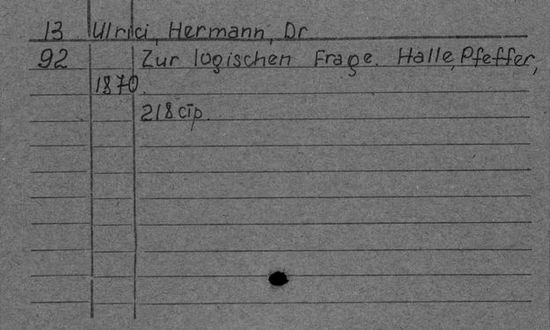 13 Ulrici, Hermann, Dr
92 Zur logischen Frage. Halle, Pfeffer,
1870.
218 стр.